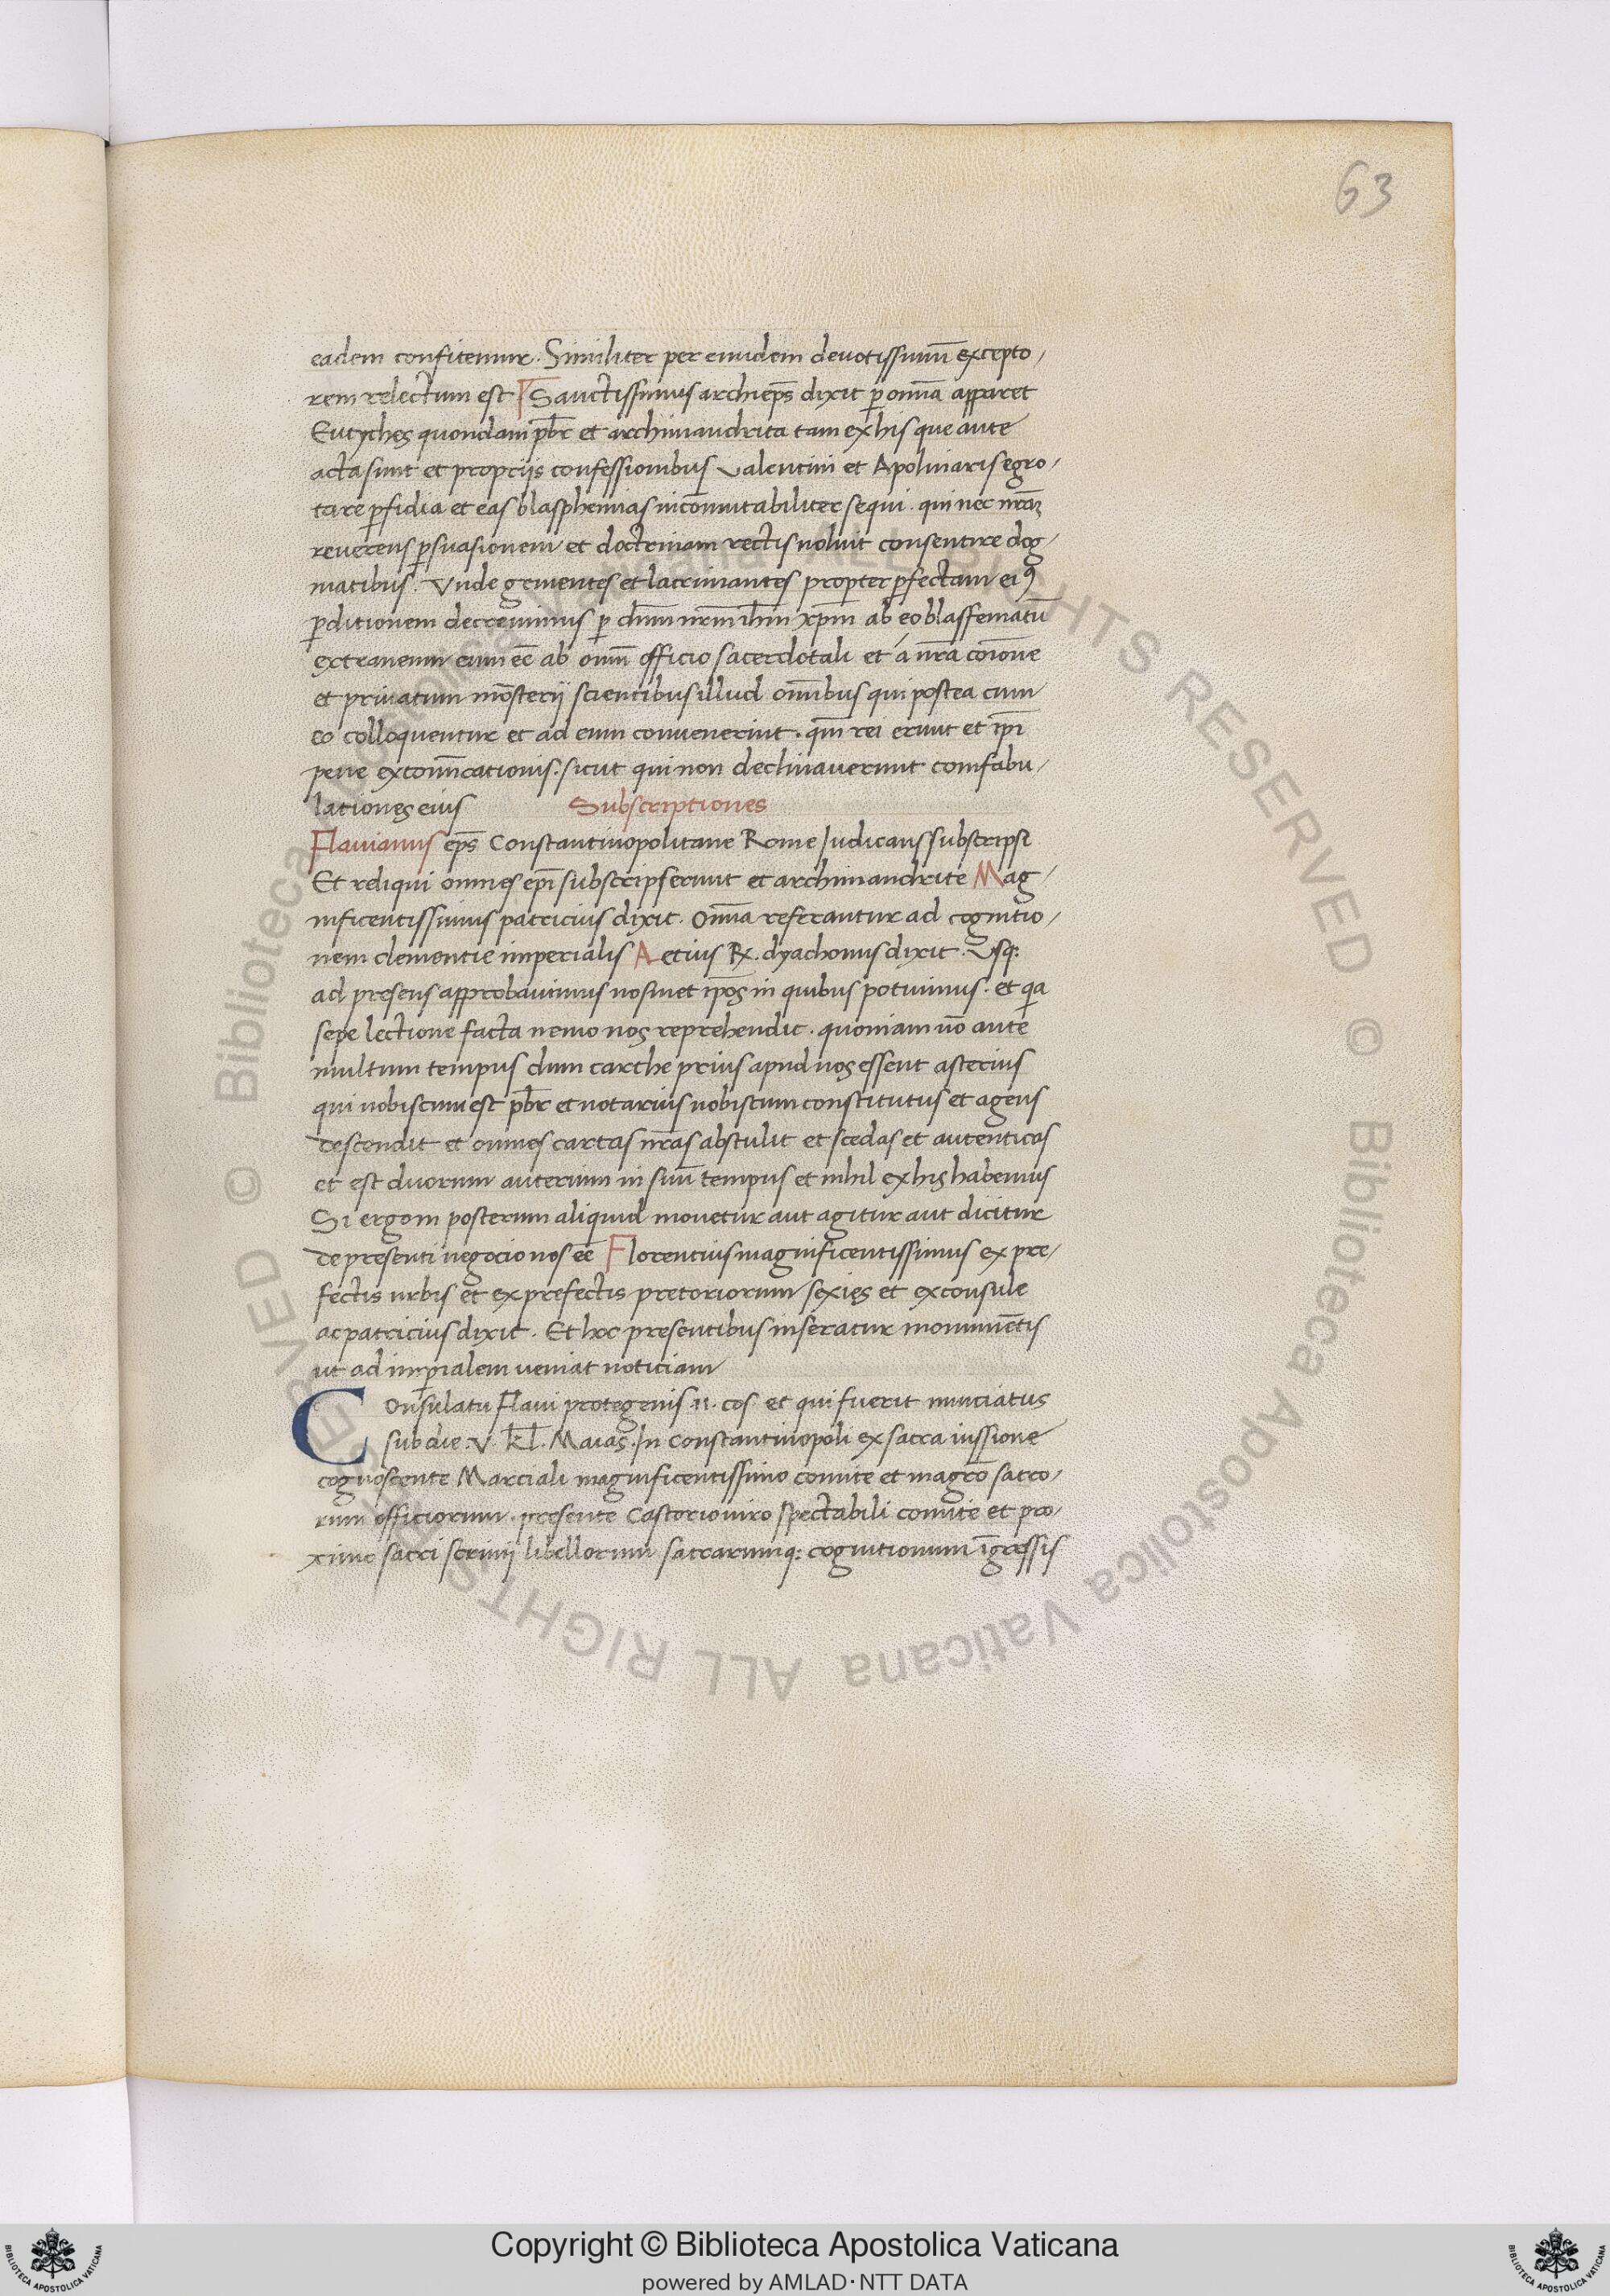 63
eadem confitemur. Similiter per eundem deuotissimū excepto/
rem relectum est Sanctissimus archiep̄s dixit ꝑ om̄ia apparet
Eutyches quondam pb̄r et archimandrita tam ex his que ante
acta sunt et proprijs confessionibus Valentini et Apolinaris egro/
tare ꝑfidia et eas blasphemias incōmutabiliter sequi. qui nec nr̄aꝫ
reuerens ꝑsuasionem et doctrinam rectis noluit consentire dog/
matibus. Vnde gementes et lacrimantes propter ꝑfectam eiꝰ
ꝑditionem decreuimus ꝑ dn̄m nr̄m ih̄m xp̄m ab eo blaffematū
extraneum eum ee̅ ab omī officio sacerdotali et á nr̄a coīone
et priuatum mōsterij scientibus illud om̄ibus qui postea cum
eo colloquentur et ad eum conuenerint. qm̄ rei erunt et ip̄i
pene excōm̄cationis. sicut qui non declinauerunt comfabu/
lationes eius Subscriptiones
Flauianus ep̄s Constantinopolitane Rome Iudicans subscripsi
Et reliqui omnes ep̄i subscripserunt et archimandrite Mag/
nificentissimus patricius dixit. Om̄ia referantur ad cognitio/
nem clementie imperialis Aetius R̷. dyachonus dixit. Vsq:
ad presens approbauimus nosmet ip̄os in quibus potuimus. et qa
sepe lectione facta nemo nos reprehendit. quoniam uō ante
multum tempus dum carche prius apud nos essent asterius
qui nobiscum est pb̄r et notarius nobiscum constitutus et agens
descendit et omnes cartas nr̄as abstulit et scedas et autenticas
et est duorum auterium in suū tempus et nihil ex his habemus
Si ergom posterum aliquid mouetur aut agitur aut dicitur
de presenti negocio nos ee̅ Florentius magnificentissimus ex pre/
fectis urbis et ex prefectis pretoriorum sexies et exconsule
ac patricius dixit. Et hoc presentibus inseratur monumētis
ut ad imꝑialem ueniat noticiam
Consulatu Flaui protegenis .II. cos et qui fuerit nunciatus
sub die .V. kl̄. Maias. In Constantinopoli ex sacra iussione
cognoscente Martiali magnificentissimo comite et magrō sacro/
rum officiorum. presente Castorio uiro spectabili comite et pro/
ximo sacri scrinij libellorum sacrarumq: cognitionum īgressis
© Biblioteca Apostolica Vaticana ALL RIGHTS RESERVED © Biblioteca Apostolica Vaticana ALL RIGHTS RESERVED
Copyright © Biblioteca Apostolica Vaticana
powered by AMLAD·NTT DATA
BIBLIOTECA APOSTOLICA VATICANA
BIBLIOTECA APOSTOLICA VATICANA